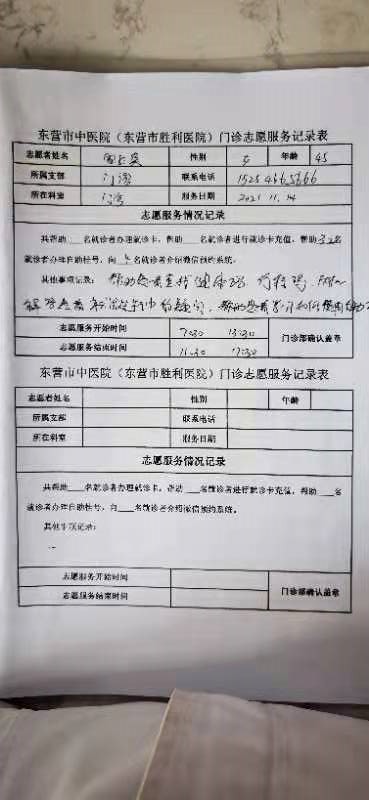 东营市中医院（东营市胜利医院）门诊志愿服务记录表
志愿者姓名 性别 女 年龄 45
所属支部 门诊 联系电话
所在科室 门诊 服务日期 2021.11.14
志愿服务情况记录
共帮助 名就诊者办理就诊卡，帮助 名就诊者进行就诊卡充值，帮助32名
就诊者办理自助挂号，向 名就诊者介绍微信预约系统。
其他事项记录：帮助患者查找健康码 行程码
志愿服务开始时间 7:30 13:30 门诊部确认盖章
志愿服务结束时间 11:30
东营市中医院（东营市胜利医院）门诊志愿服务记录表
志愿者姓名 性别 年龄
所属支部 联系电话
所在科室 服务日期
志愿服务情况记录
共帮助___名就诊者办理就诊卡，帮助___名就诊者进行就诊卡充值，帮助___名
就诊者办理自助挂号，向___名就诊者介绍微信预约系统。
其他事项记录：
志愿服务开始时间 门诊部确认盖章
志愿服务结束时间